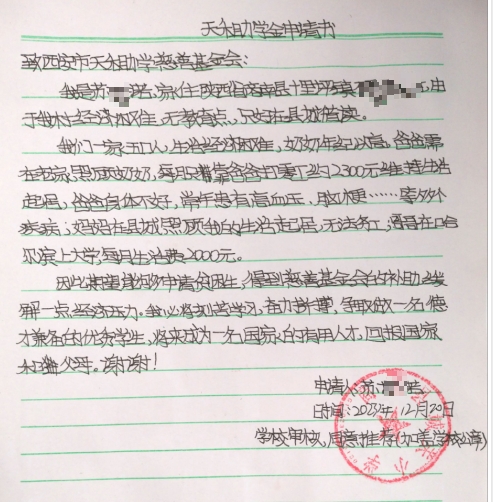 天禾助学金申请书
致西安市天禾助学慈善基金会：
我是苏 诺,家住陕西省洛南县十里坪镇 ,由
于我村经济困难，无教育点，只好在县城借读。
我们一家五口人,生活经济困难，奶奶年纪以高。爸爸需
在农家照顾奶奶，每月只靠爸爸打零工约2300元维持生活
起居，爸爸身体不好，常年患有高血压、脑梗……等外
疾病；妈妈在县城照顾我的生活起居，无法务工，哥哥在哈
尔滨上大学,每月生活费2000元。
因此希望 申请贫困生，得到慈善基金会的补助,缓
解一点经济压力。我必将刻苦学习，奋力拼搏，争取做一名德
才兼备的优秀学生，将来成为一名国家的有用人才，回报国家
和 父母。谢谢！
申请人:苏 诺
日期:2023年.12月20日
学校审核,同意推荐(加盖学校公章)